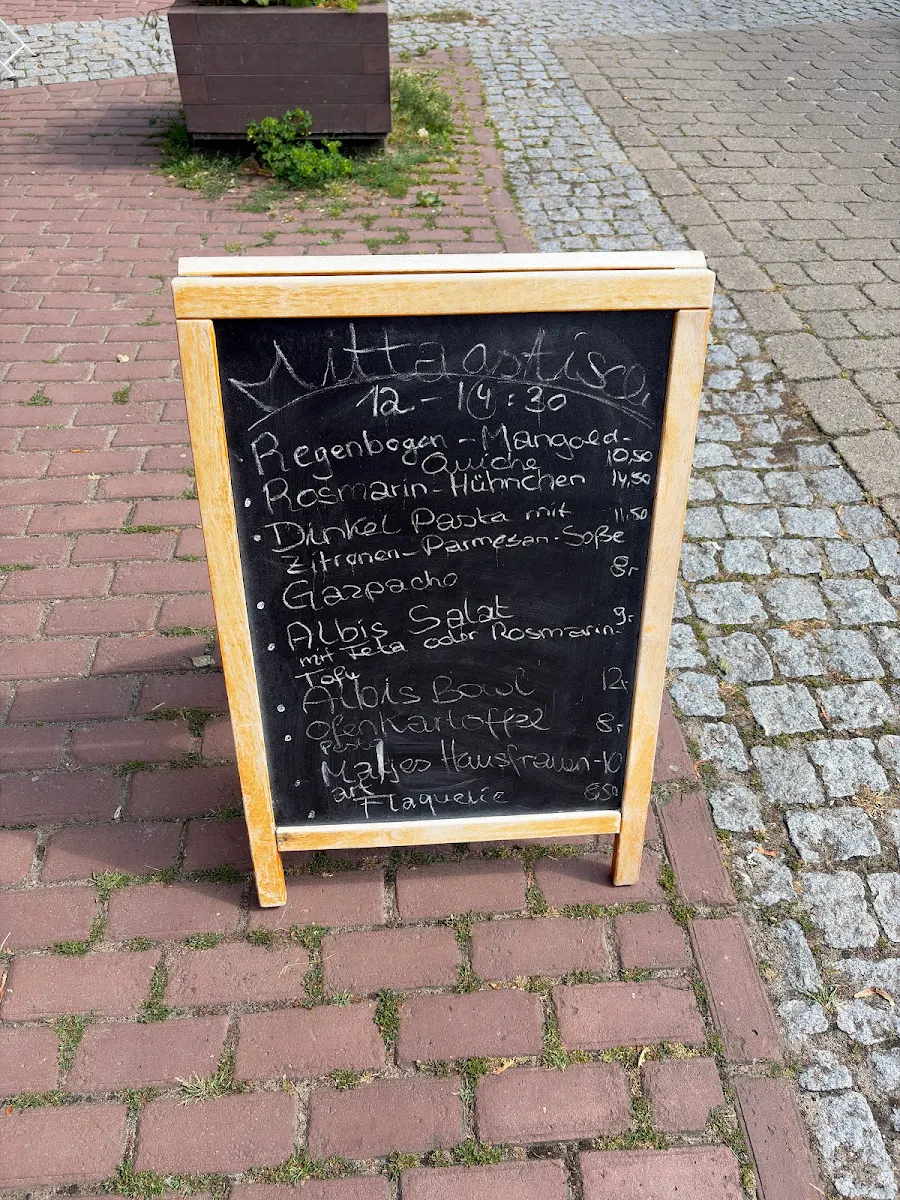 Mittagstisch
12 - 14:30
Regenbogen-Mangold-
Quiche 10,50
Rosmarin-Hühnchen 14,50
Dinkel Pasta mit 11,50
Zitronen-Parmesan-Soße
Gazpacho 8,-
Albis Salat 9,-
mit Feta oder Rosmarin-
Tofu
Albis Bowl 12,-
Ofenkartoffel 8,-
Matjes Hausfrauen- 10
art
Flaquelie 8,50